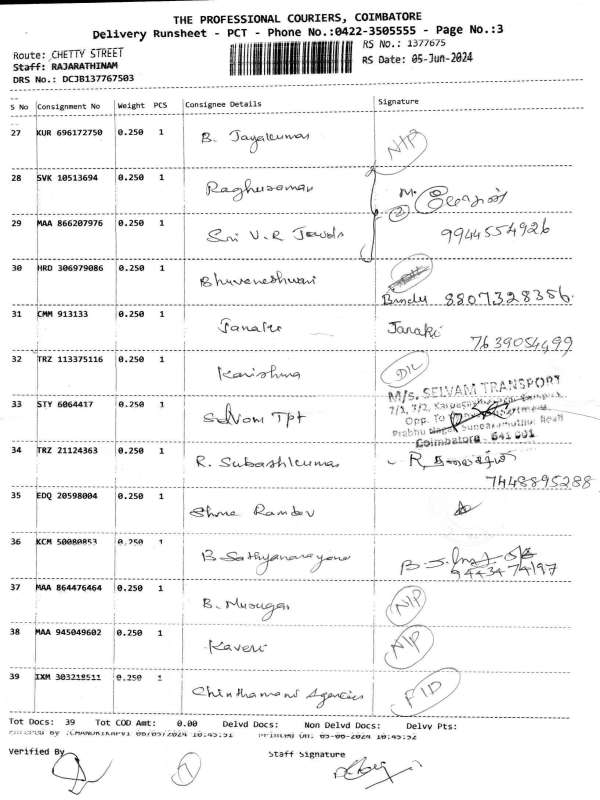 THE PROFESSIONAL COURIERS, COIMBATORE
Delivery Runsheet - PCT - Phone No.:0422-3505555 - Page No.:3
Route: CHETTY STREET
RS No.: 1377675
Staff: RAJARATHINAM
RS Date: 05-Jun-2024
DRS No.: DCJB137767503
S No Consignment No Weight PCS Consignee Details Signature
27 KUR 696172750 0.250 1 B. Jayakumar N/P
28 SVK 10513694 0.250 1 Raghuraman M.
29 MAA 866207976 0.250 1 Sri V.R Jewels 2 9944554926
30 HRD 306979086 0.250 1 Bhuvaneshwari
Bindu 8807328356
31 CMM 913133 0.250 1 Janaki Janaki
7639054499
32 TRZ 113375116 0.250 1 Karishma D/L
33 STY 6064417 0.250 1 Selvam TPT M/s. SELVAM TRANSPORT
Opp. To
Coimbatore - 641 001
34 TRZ 21124363 0.250 1 R. Subashkumar R.
7448895288
35 EDQ 20598004 0.250 1 Shree Ramdev
36 KCM 50080853 0.250 1 B Sathyanarayana
9443474197
37 MAA 864476464 0.250 1 B. Murugan N/P
38 MAA 945049602 0.250 1 Kaveri N/P
39 IXM 303218511 0.250 1 Chinthamani Agencies
Tot Docs: 39 Tot COD Amt: 0.00 Delvd Docs: Non Delvd Docs: Delvy Pts:
Printed On: 05-06-2024 10:45:52
Verified By
Staff Signature